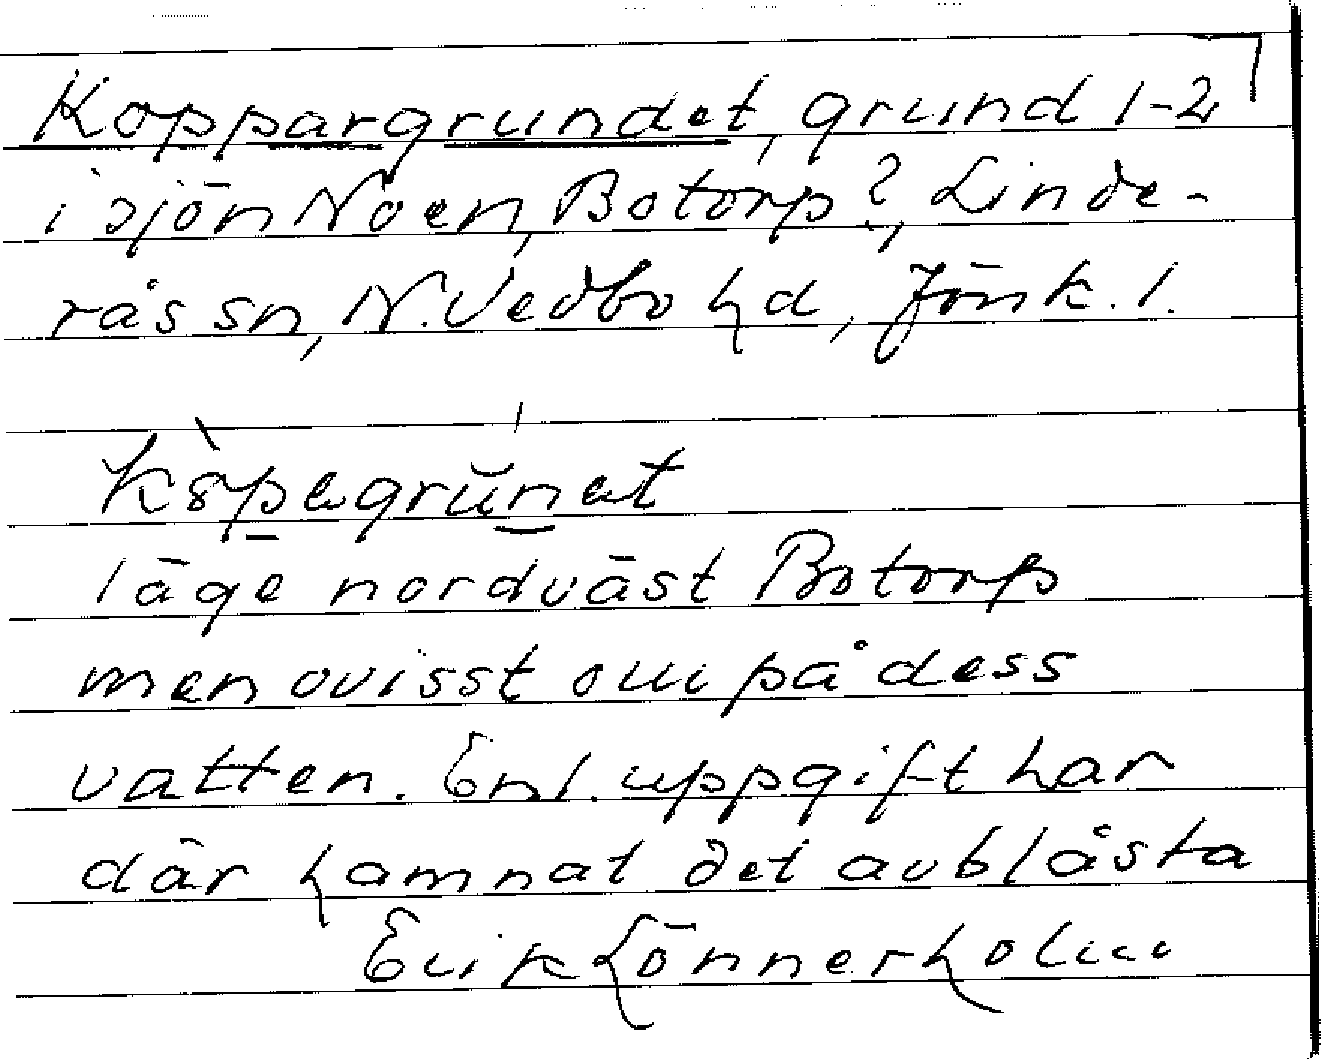 Koppargrundet, grund 1-2
i sjön Noen, Botorp?, Linde-
rås sn, N. Vedbo hd, Jönk. l.
läge nordväst Botorp
men ovisst om på dess
vatten. Enl. uppgift har
där hamnat det avblåsta
Erik Lönnerholm